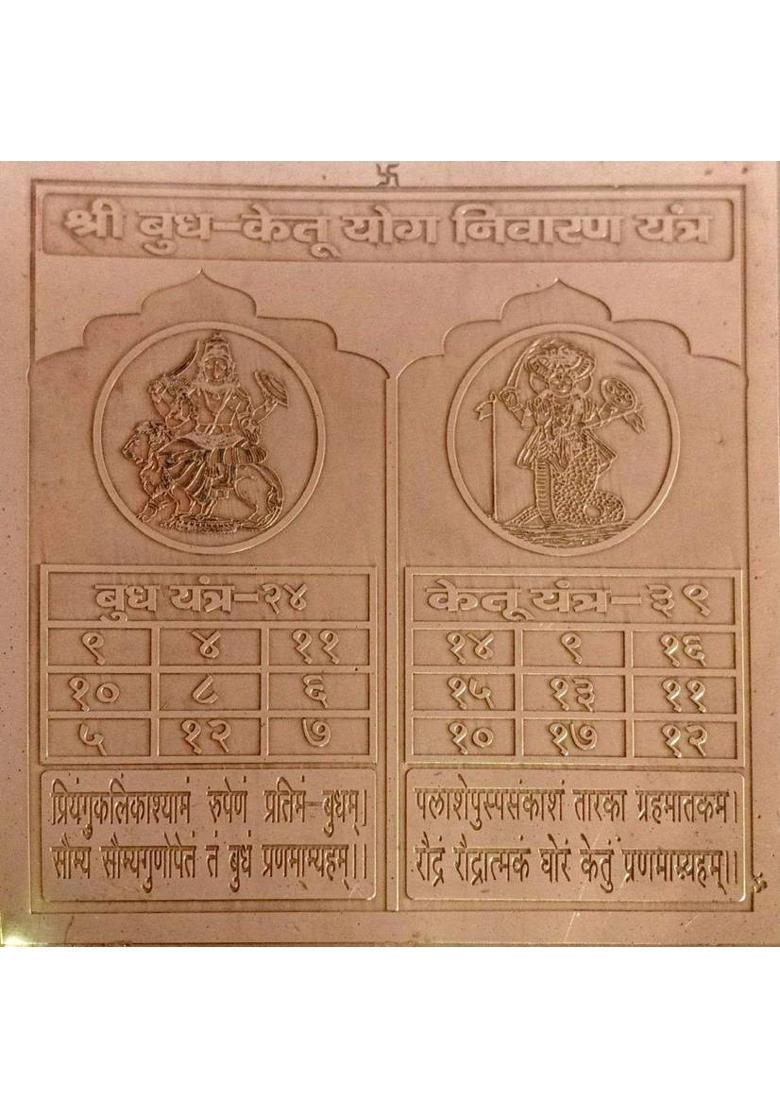 श्री बुध-केतू योग निवारण यंत्र
बुध यंत्र-२४
९ ४ ११
१० ८ ६
५ १२ ७
प्रियंगुकलिकाश्यामं रुपेणं प्रतिमं-बुधम्।
सौम्य सौम्यगुणोपेतं तं बुधं प्रणमाम्यहम्।।
केतू यंत्र-३९
१४ ९ १६
१५ १३ ११
१० १७ १२
पलाशेपुस्पसंकाशं तारका ग्रहमातकम।
रौद्रं रौद्रात्मकं घोरं केतुं प्रणमाम्यहम्।।